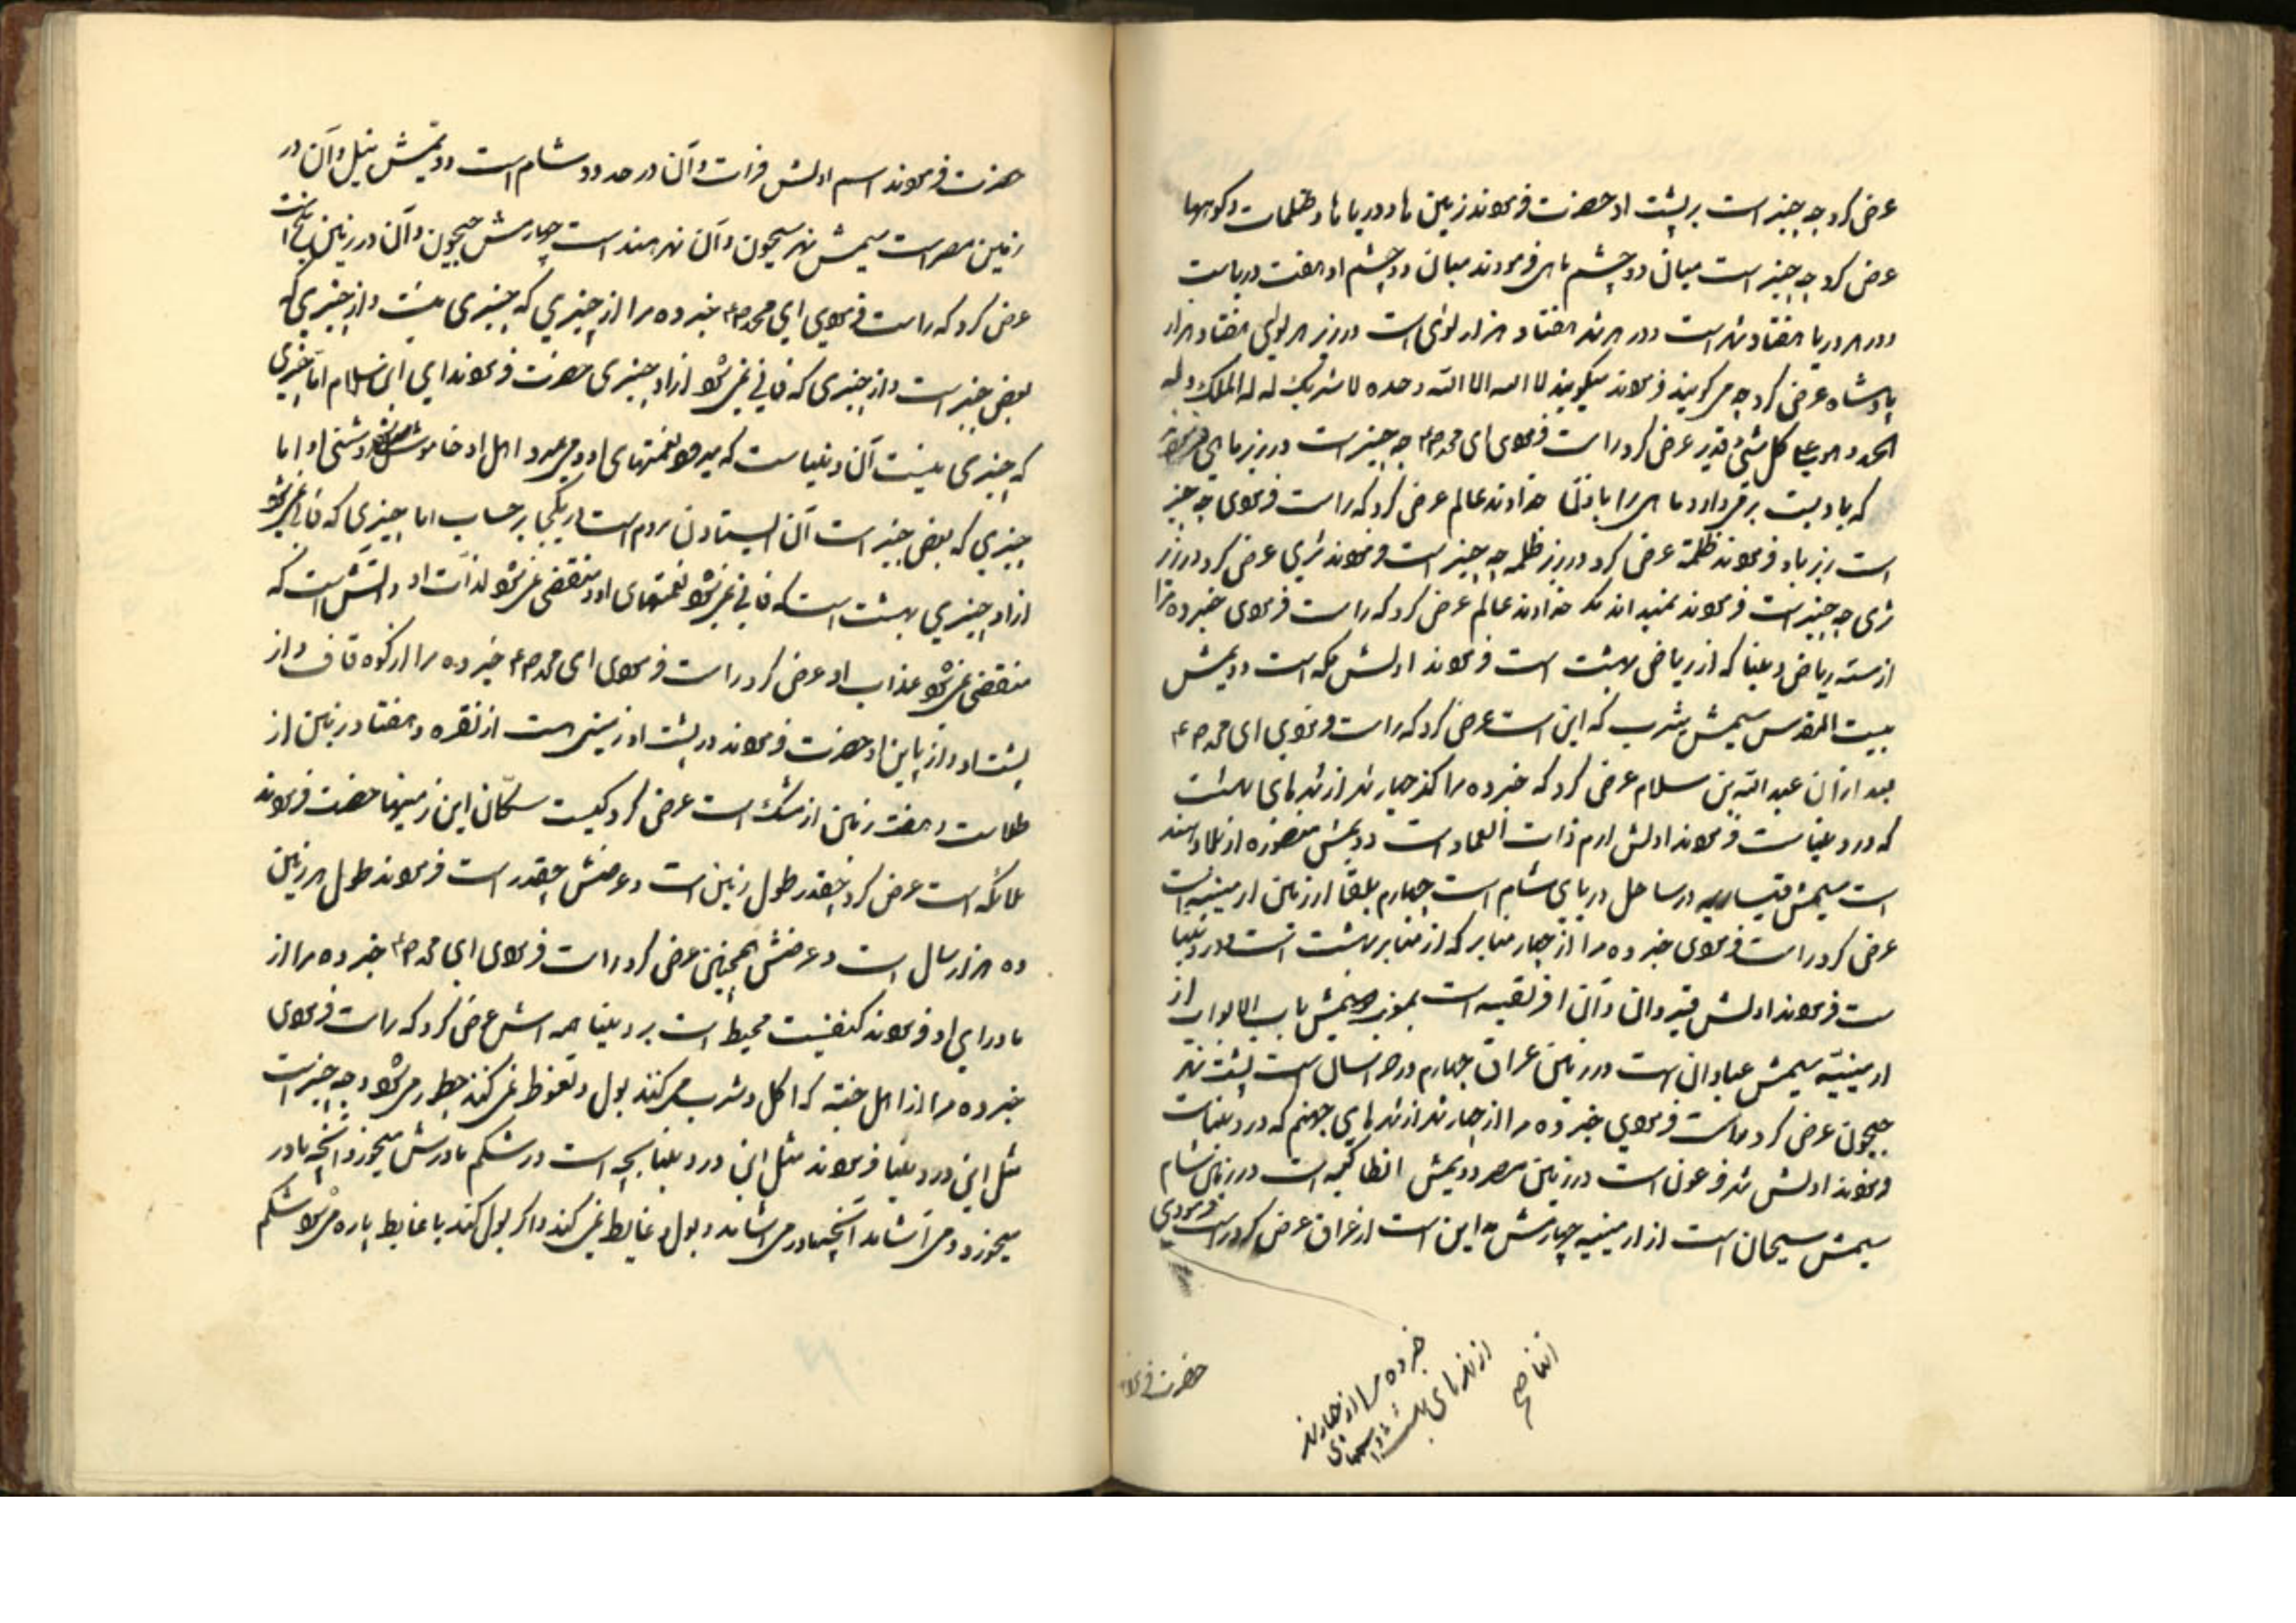 عرض کرد چه چیز است بر پشت او حضرت فرمودند زمین ها و دریا ها و ظلمات و کوهها
عرض کرد چه چیز است میان دو چشم ماهی فرمودند میان دو چشم او هفت دریاست
و در هر دریا هفتاد شهر است و در هر شهر هفتاد هزار لوای است در زیر هر لوائی هفتاد هزار
پادشاه عرض کرد چه می گویند فرمودند میگویند لا اله الا الله وحده لا شریک له له الملک و له
الحمد و هو علی کل شئ قدیر عرض کرد راست فرمودی ای محمد ص ع چه چیز است در زیر ماهی
که بادیست بر میدارد ماهی را باذن خداوند عالم عرض کرد که راست فرمودی چه چیز
است زیر باد فرمودند ظلمة عرض کرد در زیر ظلمه چه چیز است فرمودند ثری عرض کرد در زیر
ثری چه چیز است فرمودند نمیداند مگر خداوند عالم عرض کرد که راست فرمودی خبر ده مرا
از سه ریاض دنیا که از ریاض بهشت است فرمودند اولش مکه است دویمش
بیت المقدس سیمش یثرب که این است عرض کرد که راست فرمودی ای محمد ص ع
بعد از آن عبد الله بن سلام عرض کرد که خبر ده مرا از چهار شهر از شهرهای بهشت
که در دنیاست فرمودند اولش ارم ذات العماد است دویمش منصوره از بلاد هند
است سیمش قیساریه در ساحل دریای شام است چهارم بلقا از زمین ارمینیه است
عرض کرد راست فرمودی خبر ده مرا از چهار منابر که از منابر بهشت است در دنیا
ست فرمودند اولش قیروان و آن افریقیه است بمغرب دویمش باب الابواب از
ارمینیه سیمش عبادان است در زمین عراق چهارم در خراسان است پشت نهر
جیحون عرض کرد راست فرمودی خبر ده مرا از چهار شهر از شهر های جهنم که در دنیاست
فرمودند اولش شهر فرعون است در زمین مصر دویمش انطاکیه است در زمین شام
سیمش سیحان است از ارمینیه چهارمش مداین است از عراق عرض کرد راست فرمودی
خبر ده مرا از چهار نهر
از نهرهای بهشت و اسمهای
حضرت فرمود
حضرت فرمودند اسم اولش فرات و آن در حدود شام است دویمش نیل و آن در
زمین مصر است سیمش نهر سیحون و آن نهر هند است چهارمش جیحون و آن در زمین بلخ است
عرض کرد که راست فرمودی ای محمد ص ع خبر ده مرا از چیزی که چیزی نیست و از چیزی که
بعض چیز است و از چیزی که فانی نمی شود از او چیزی حضرت فرمودند ای ابن سلام اما چیزی
که چیزی نیست آن دنیاست که میرود نعمتهای او و می میرد اهل او و خاموش میشود روشنی او اما
چیزی که بعض چیز است آن ایستادن مردم است در یکجا بر حساب اما چیزی که فانی نمی شود
از او چیزی بهشت است که فانی نمی شود نعمتهای او و منقضی نمی شود لذات او و آتش است که
منقضی نمی شود عذاب او عرض کرد راست فرمودی ای محمد ص ع خبر ده مرا از کوه قاف و از
پشت او و از پایین او حضرت فرمودند در پشت او زمینی هست از نقره و هفتاد زمین از
طلاست و هفت زمین از مشک است عرض کرد کیست سکان این زمینها حضرت فرمودند
ملائکه است عرض کرد چقدر طول زمین است و عرضش چقدر است فرمودند طول هر زمین
ده هزار سال است و عرضش همچنین عرض کرد راست فرمودی ای محمد ص ع خبر ده مرا از
ماورای او فرمودند کیفیست محیط است بر دنیا همه اش عرض کرد که راست فرمودی
خبر ده مرا از اهل جنة که اکل و شرب می کنند بول و تغوط نمی کنند چطور می شود و چه چیز است
مثل این در دنیا فرمودند مثل این در دنیا بچه است در شکم مادرش میخورد آنچه مادر
میخورد و می آشامد آنچه مادر می آشامد و بول و غایط نمی کند و اگر بول کند یا غایط پاره می شود شکم